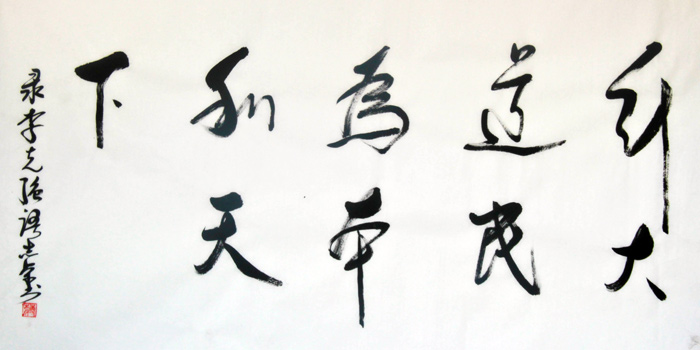 行大
道民
為本
利天
下
录李克强语志金书